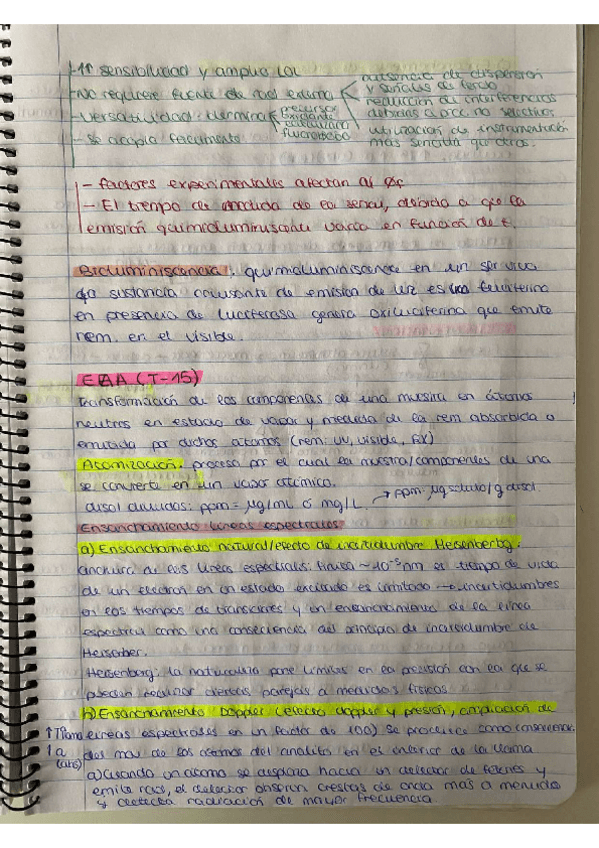 - ↑↑ sensibilidad y amplio LOL
- No requiere fuente de rad externa
ausencia de dispersión
y señales de fondo
reducción de interferencias
debidas a pcc. no selectivos
- Versatilidad: determina
precursor
oxidante
catalizador
fluoróforo
- Se acopla fácilmente
utilización de instrumentación
más sencilla que otros.
- factores experimentales afectan al ϕc
- El tiempo de medida de la señal, debido a que la
emisión quimioluminiscente varía en función de t.
Bioluminiscencia: quimioluminiscencia en un ser vivo
la sustancia causante de emisión de luz es una luciferina
en presencia de luciferasa genera oxiluciferina que emite
rem. en el visible.
EAA (T-15)
Transformación de los componentes de una muestra en átomos
neutros en estado de vapor y medida de la rem absorbida o
emitida por dichos átomos (rem: UV, visible, Rx)
Atomización: proceso por el cual la muestra/componentes de una
se convierte en un vapor atómico.
disol diluidas: ppm = µg/mL ó mg/L. → ppm: µg soluto/g disol.
Ensanchamiento líneas espectrales
a) Ensanchamiento natural/efecto de incertidumbre Heisenberg:
anchura de las líneas espectrales: finita ~10⁻⁵nm es tiempo de vida
de un electrón en un estado excitado es limitado → incertidumbres
en los tiempos de transiciones y un ensanchamiento de la línea
espectral como una consecuencia del principio de incertidumbre de
Heisenber.
Heisenberg: la naturaleza pone límites en la precisión con la que se
pueden realizar ciertas parejas de medidas físicas
b) Ensanchamiento Doppler (efecto doppler y presión, ampliación de
líneas espectrales en un factor de 100) se produce como consecuencia
↑Tllama
↑a
(ahs)
del mov de los átomos del analito en el interior de la llama
a) Cuando un átomo se desplaza hacia un detector de fotones y
emite rad, el detector observa crestas de onda más a menudo
y detecta radiación de mayor frecuencia